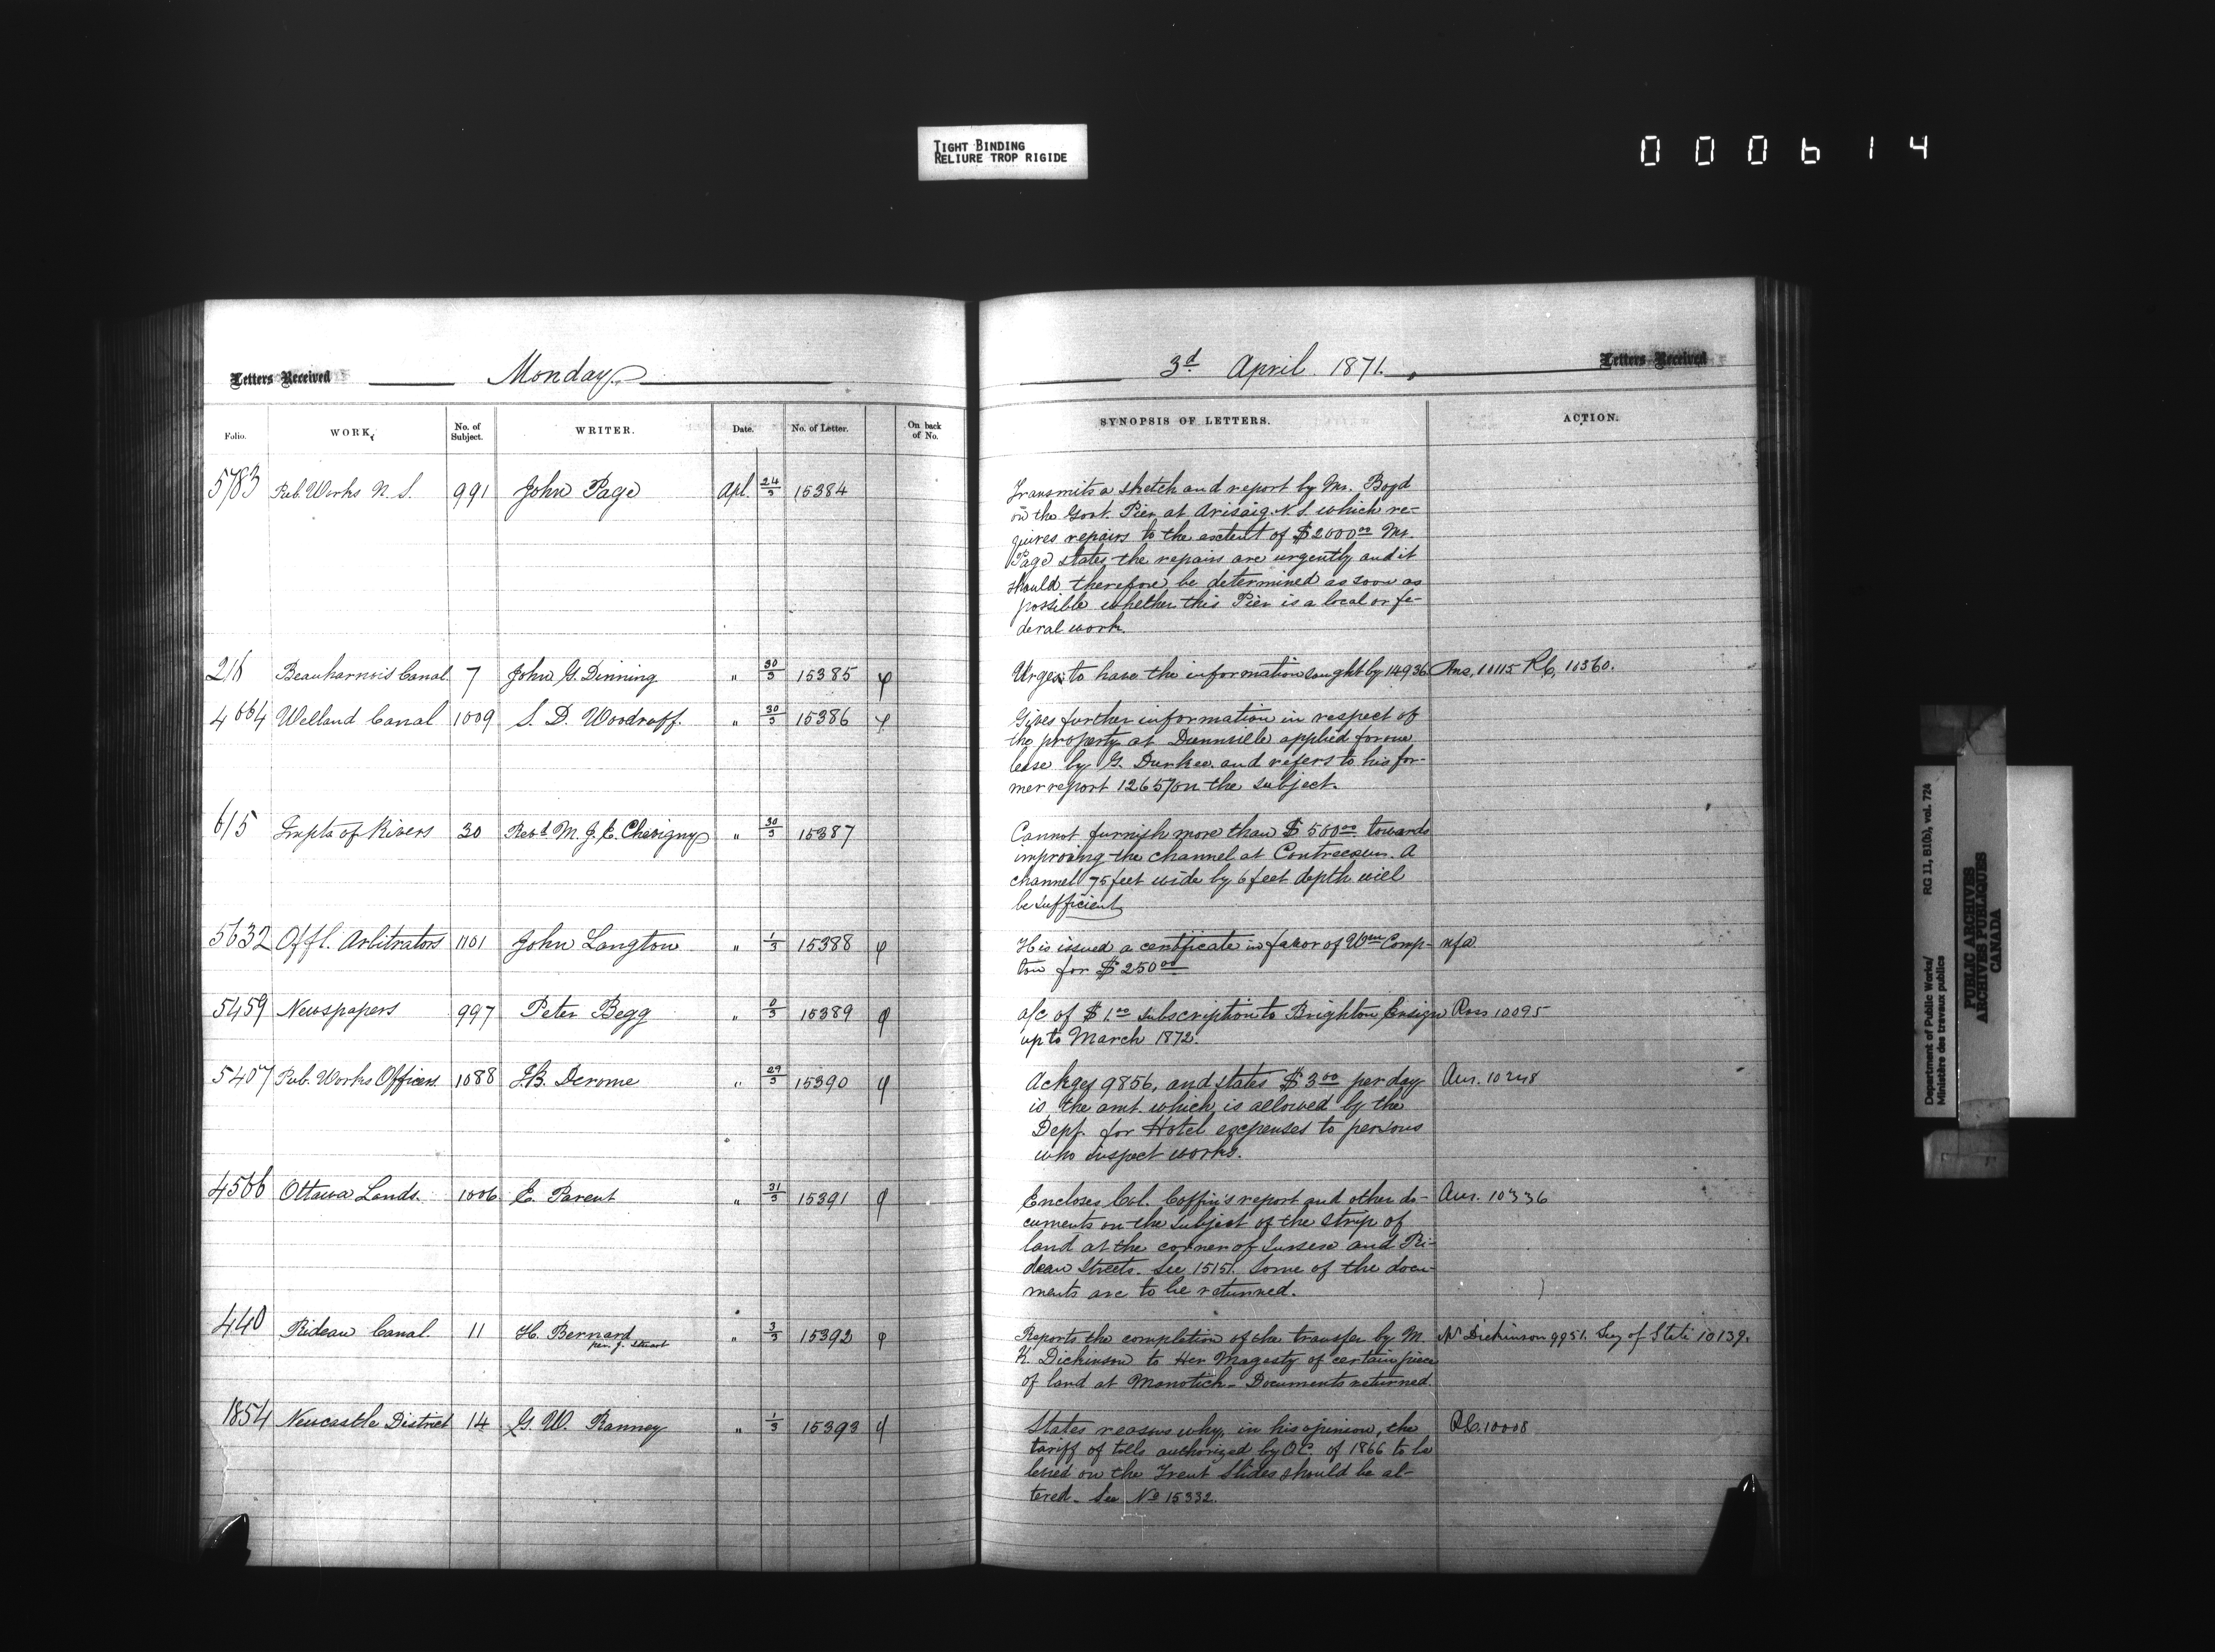 TIGHT BINDING
RELIURE TROP RIGIDE
000614
Letters Received Monday
Folio. WORK. No. of Subject. WRITER. Date. No. of Letter. On back of No.
5783 Pub. Works N.S. 991 John Page Apl. 24/3 15384
216 Beauharnois Canal 7 John G. Dinning " 30/3 15385 φ
4664 Welland Canal 1009 S. D. Woodruff. " 30/3 15386 φ
615 Impts of Rivers 30 Revd. M. J. E. Chevigny " 30/3 15387
5632 Offl. Arbitrators 1101 John Langton " 1/3 15388 φ
5459 Newspapers 997 Peter Begg " 0/3 15389 φ
5407 Pub. Works Officers 1088 J.B. Derome " 29/3 15390 φ
4566 Ottawa Lands. 1006 E. Parent " 31/3 15391 φ
440 Rideau Canal 11 H. Bernard " 3/3 15392 φ
per. J. Stuart
1854 Newcastle District 14 G. W. Ranney " 1/3 15393 φ
3d. April. 1871. Letters Received
SYNOPSIS OF LETTERS. ACTION.
Transmits a sketch and report by Mr. Boyd
on the Govt. Pier at Arisaig. N.S. which re-
quires repairs to the extent of $2000.00 Mr.
Page states the repairs are urgently and it
should therefore be determined as soon as
possible whether this Pier is a local or fe-
deral work.
Urges to have the information sought by 14936 Ans. 10115 RC, 10360.
Gives further information in respect of
the property at Dunnville applied for on
lease by G. Durkee. and refers to his for-
mer report 12657 on the subject.
Cannot furnish more than $500.00 towards
improving the channel at Contrecoeur. A
channel 75 feet wide by 6 feet depth will
be sufficient
His issued a certificate in favor of Wm Comp- nfa.
ton for $250.00
a/c of $1.00 subscription to Brighton Ensign Ans 10095
up to March 1872.
Ackges 9856, and states $3.00 per day Ans. 10248
is the amt. which is allowed by the
Dept. for Hotel expenses to persons
who inspect works.
Encloses Col. Coffin's report and other do- Ans. 10336
cuments on the subject of the strip of
land at the corner of Sussex and Ri-
deau Streets. See 15151. Some of the docu-
ments are to be returned.
Reports the completion of the transfer by M. Dickinson 9951. Secy of State 10139.
K. Dickinson to Her Magesty of certain piece
of land at Manotick. Documents returned.
States reasons why, in his opinion, the RC. 10008
tariff of tolls authorized by O.C. of 1866 to be
levied on the Trent Slides should be al-
tered. See No 15332.
Department of Public Works/ RG 11, B1(b), vol. 724
Ministère des travaux publics
PUBLIC ARCHIVES
ARCHIVES PUBLIQUES
CANADA